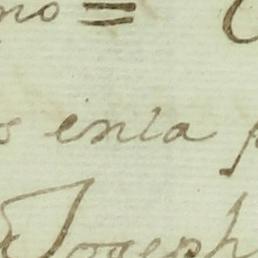 no =
s enla p
Joseph